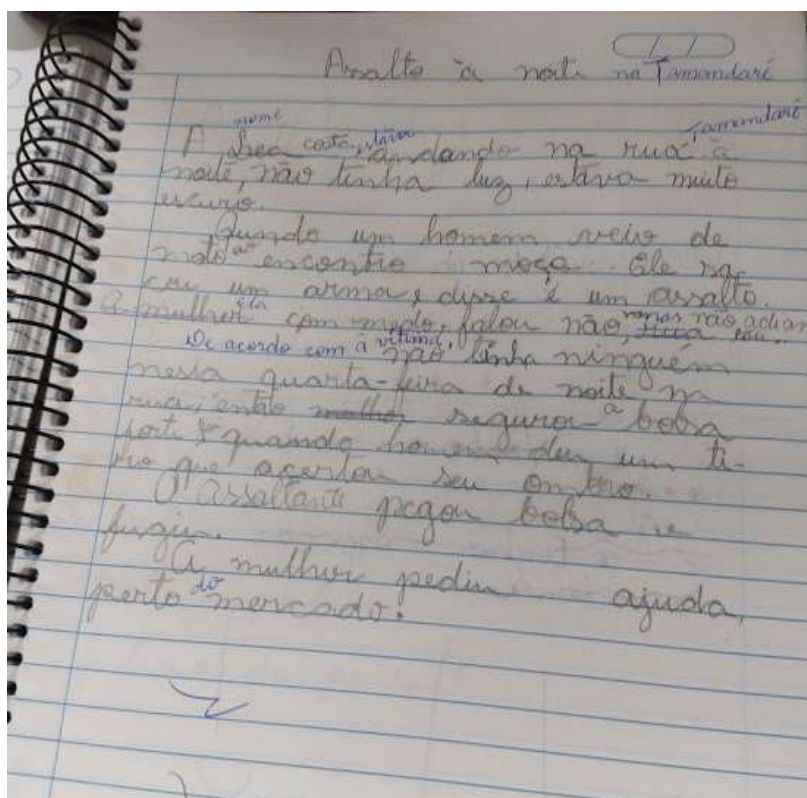 Assalto à noite na Tamandaré
nome Tamandaré
A costa, estava andando na rua à
noite, não tinha luz, estava muito
escuro.
Quando um homem veio de
moto ao encontro moça. Ele sa-
cou um arma, disse é um assalto.
A mulher ela com medo, falou não, mas não adian
De acordo com a vítima, tou.
não tinha ninguém
nessa quarta-feira de noite, na
rua, então mulher segurou a bolsa
forte quando homem deu um ti-
ro que acertou seu ombro.
O assaltante pegou bolsa e
fugiu.
A mulher pediu ajuda,
perto do mercado.